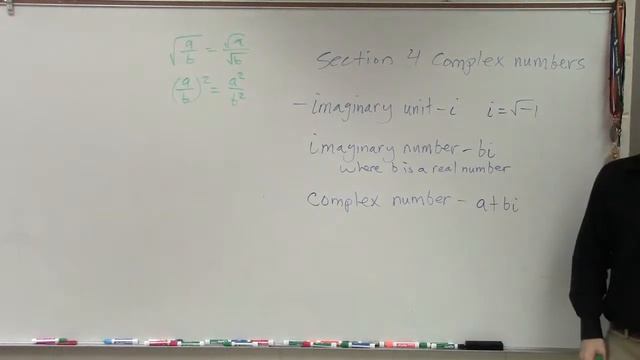 √(a/b) = √a/√b
(a/b)² = a²/b²
Section 4 Complex numbers
- imaginary unit - i   i = √-1
imaginary number - bi
where b is a real number
Complex number - a+bi